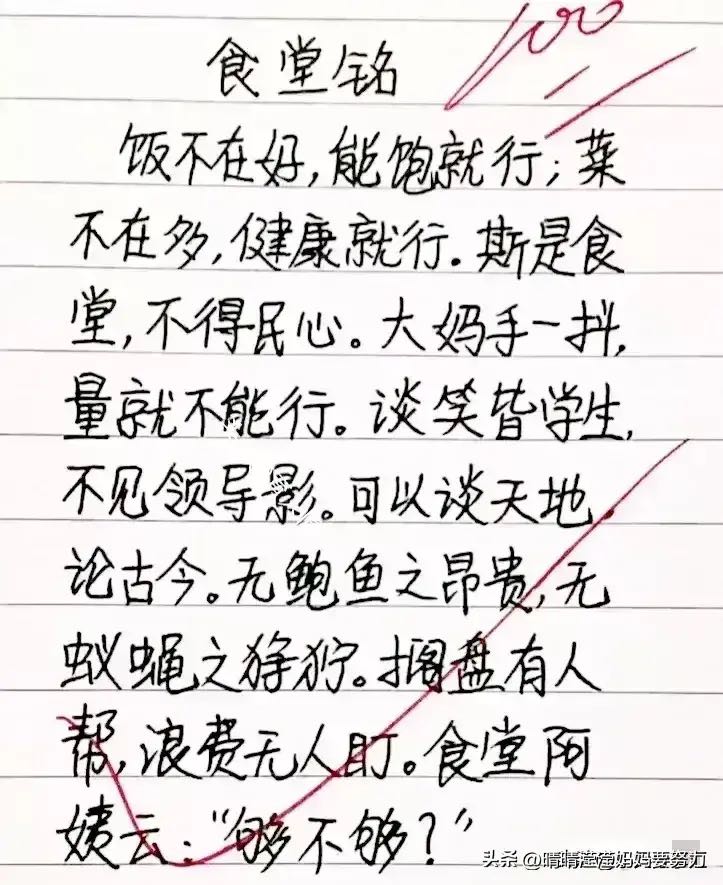 100
食堂铭
饭不在好,能饱就行;菜
不在多,健康就行。斯是食
堂,不得民心。大妈手一抖,
量就不能行。谈笑皆学生,
不见领导影。可以谈天地,
论古今。无鲍鱼之昂贵,无
蚁蝇之狰狞。搁盘有人
帮,浪费无人盯。食堂阿
姨云:“够不够?”
头条@晴晴滢滢妈妈要努力